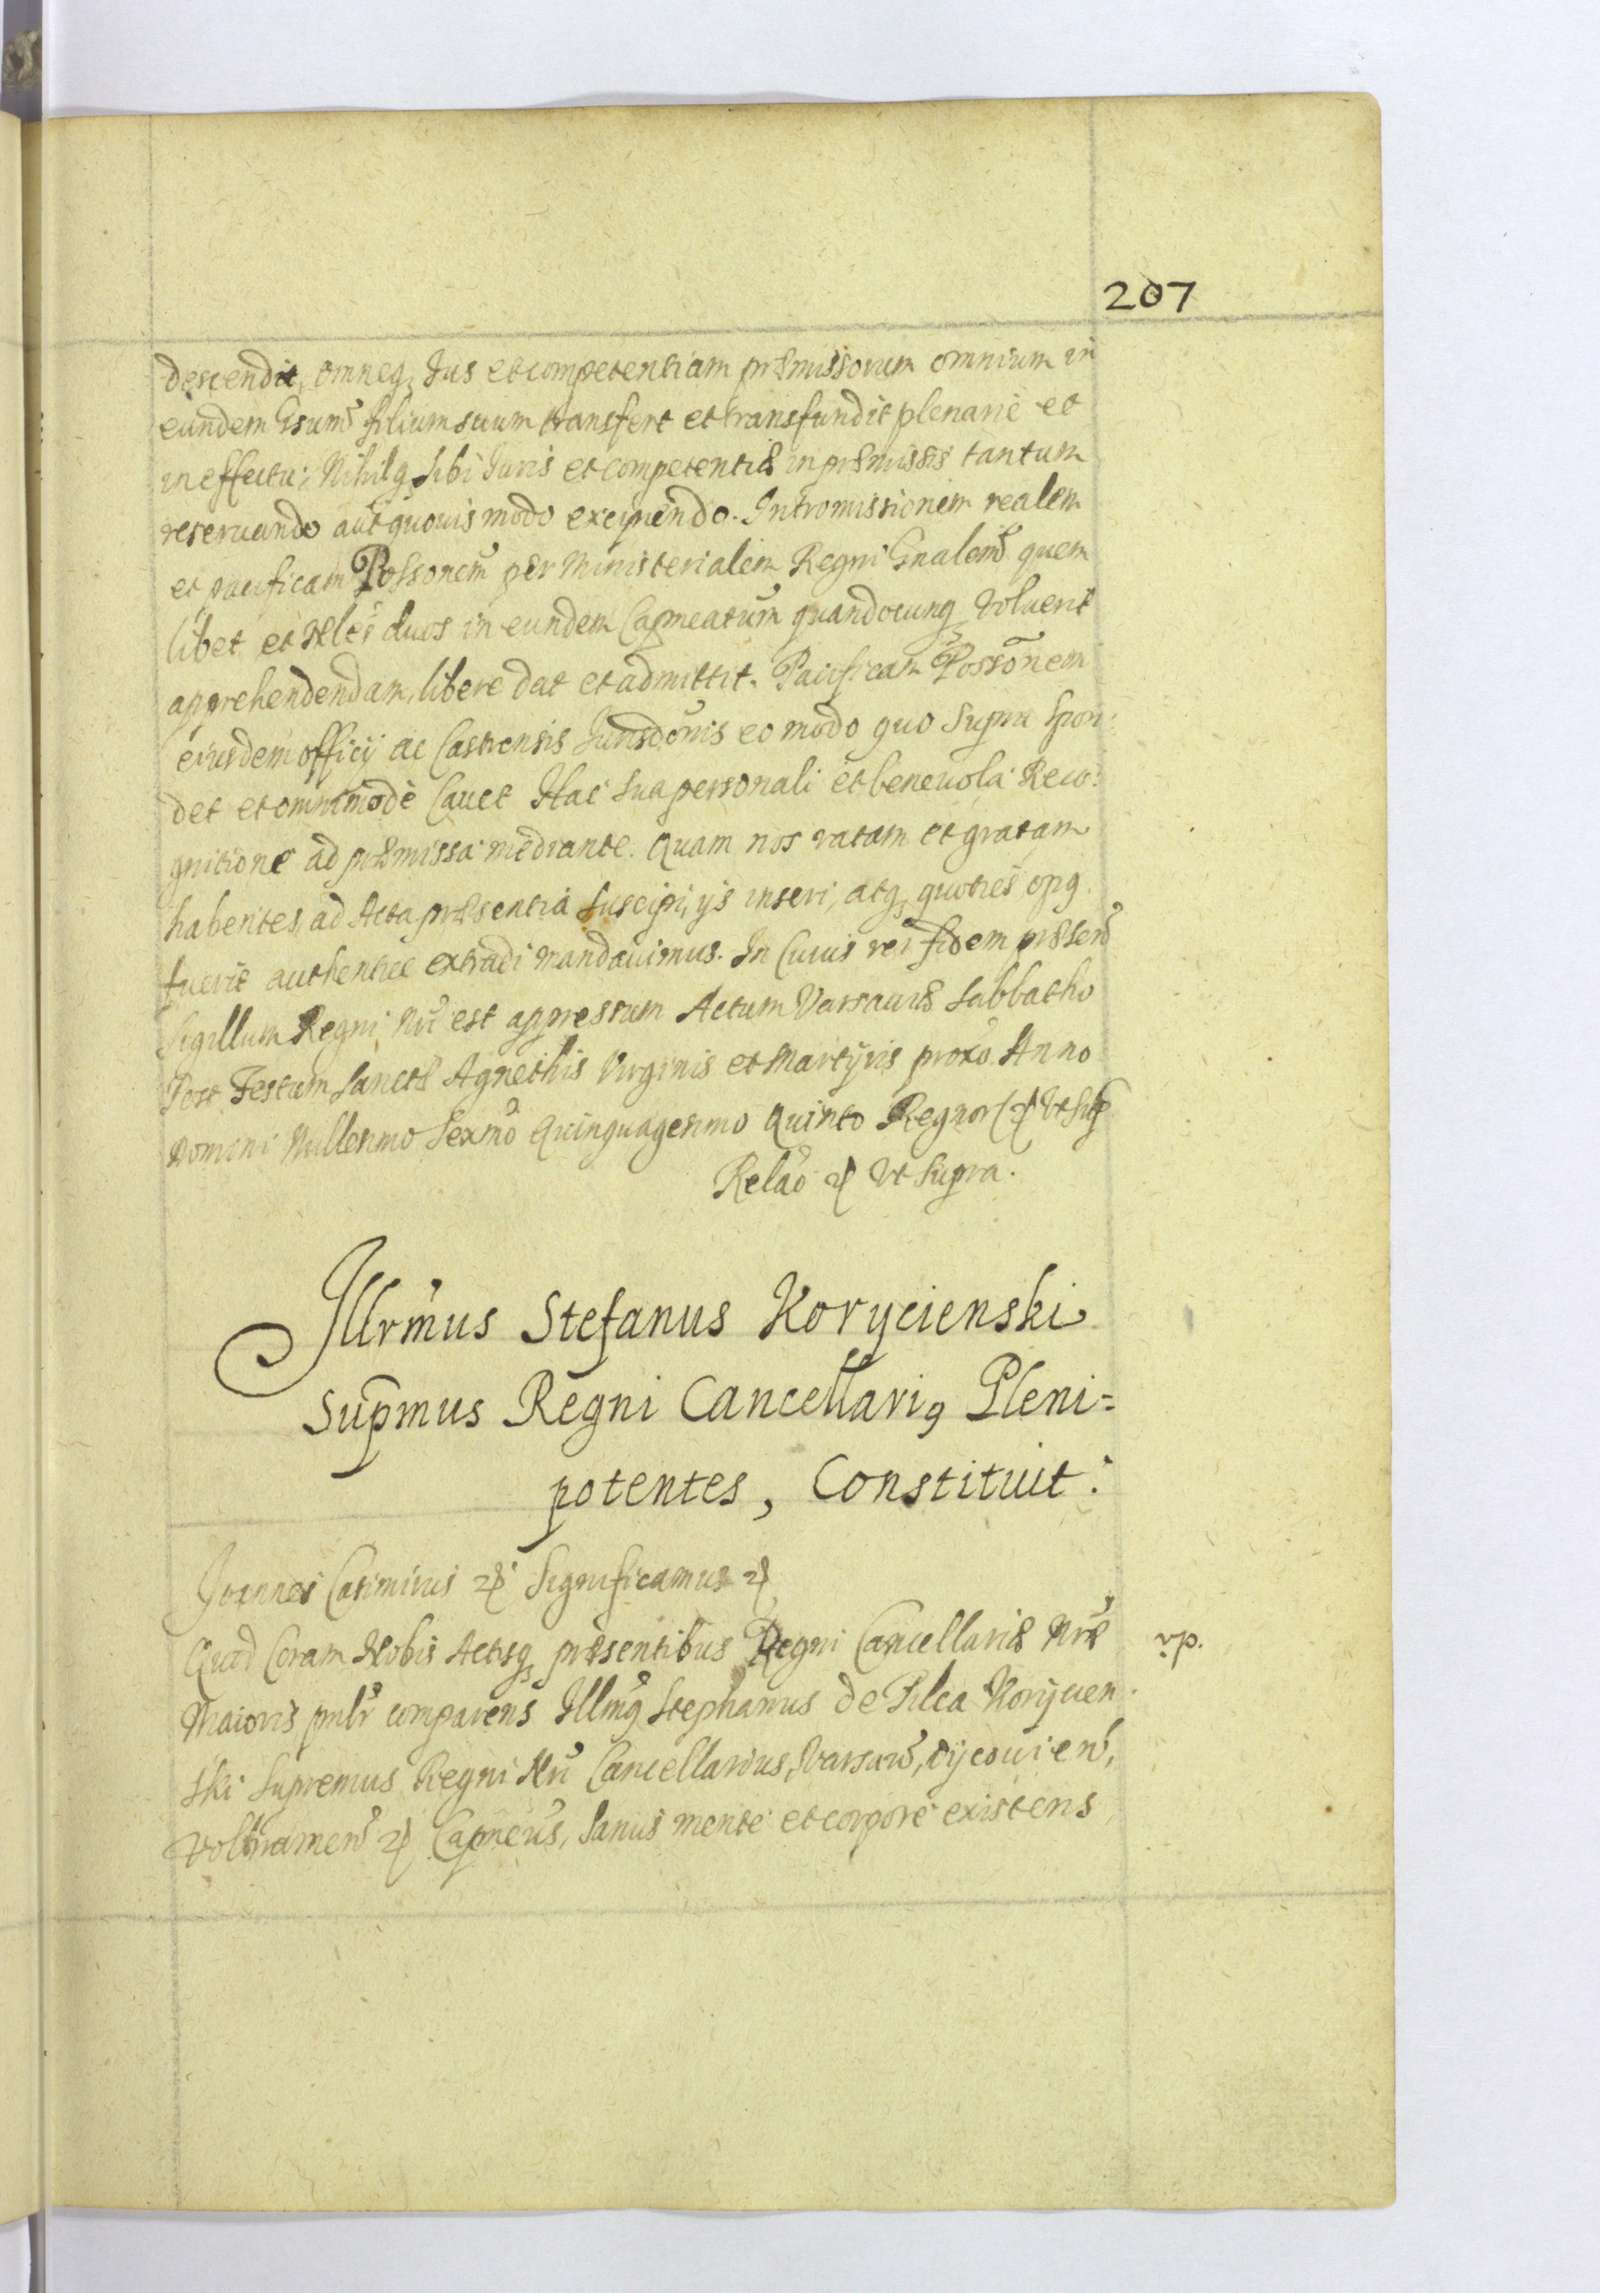 207
descendit, omneq, Jus et competentiam præmissorum omnium in
eundem Gsum filium suum transfert et transfundit plenariè et
in effectu; Nihilq, sibi Juris et competentiæ in præmissis tantum
reseruando aut quouis modo excipiendo. Intromissionem realem
et pacificam Possonem per Ministerialem Regni Gnalem quem
libet et Nbles duos in eundem Capneatum quandocunq voluerit
apprehendendam, libere dat et admittit. Pacificam Possonem
eiusdem officij ac Castrensis Jurisdonis eo modo quo supra spon:
det et omnimodè Cauet Hac sua personali et beneuola Reco:
gnitione ad præmissa mediante. Quam nos ratam et gratam
habentes, ad Acta præsentia suscipi, ijs inseri, atq, quoties opq
fuerit authentice extradi mandauimus. In Cuius rei fidem præsen
Sigillum Regni Nri est appressum Actum Varsauiæ Sabbatho
Post Festum Sanctæ Agnethis Virginis et Martyris proxo Anno
Domini Millesimo Sexmo Quinquagesimo Quinto Regnor Vt Sup
Relao Vt Supra.
Illrmus Stefanus Korycienski
Supmus Regni Cancellariq Pleni=
potentes, Constituit:
Joannes Casimirus Significamus
Quod Coram Nobis Actisq præsentibus Regni Cancellariæ Nræ
rp.
Maioris pnlr comparens Illmq Stephanus de Pilca Korycien
ski Supremus Regni Nri Cancellarius, Varsau, Oycouien,
Volbramen Capneus, Sanus mente et corpore existens